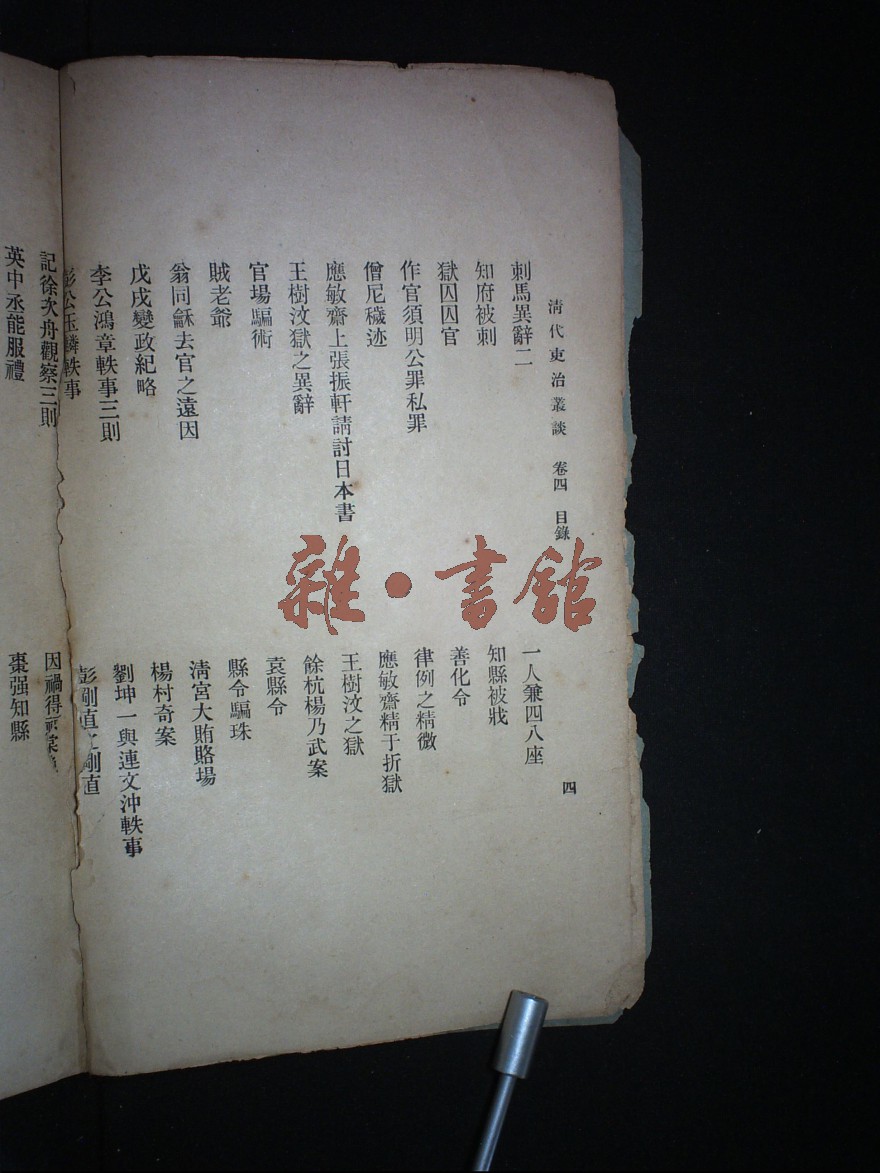 清代吏治叢談 卷四 目錄 四
刺馬異辭二 一人兼四八座
知府被刺 知縣被戕
獄囚囚官 善化令
作官須明公罪私罪 律例之精微
僧尼穢迹 應敏齋精于折獄
應敏齋上張振軒請討日本書 王樹汶之獄
王樹汶獄之異辭 餘杭楊乃武案
官場騙術 袁縣令
賊老爺 縣令騙珠
翁同龢去官之遠因 清宮大賄賂場
戊戌變政紀略 楊村奇案
李公鴻章軼事三則 劉坤一與連文沖軼事
彭公玉麟軼事 彭剛直之剛直
記徐次舟觀察三則 因禍得
英中丞能服禮 棗强知縣
雜·書館